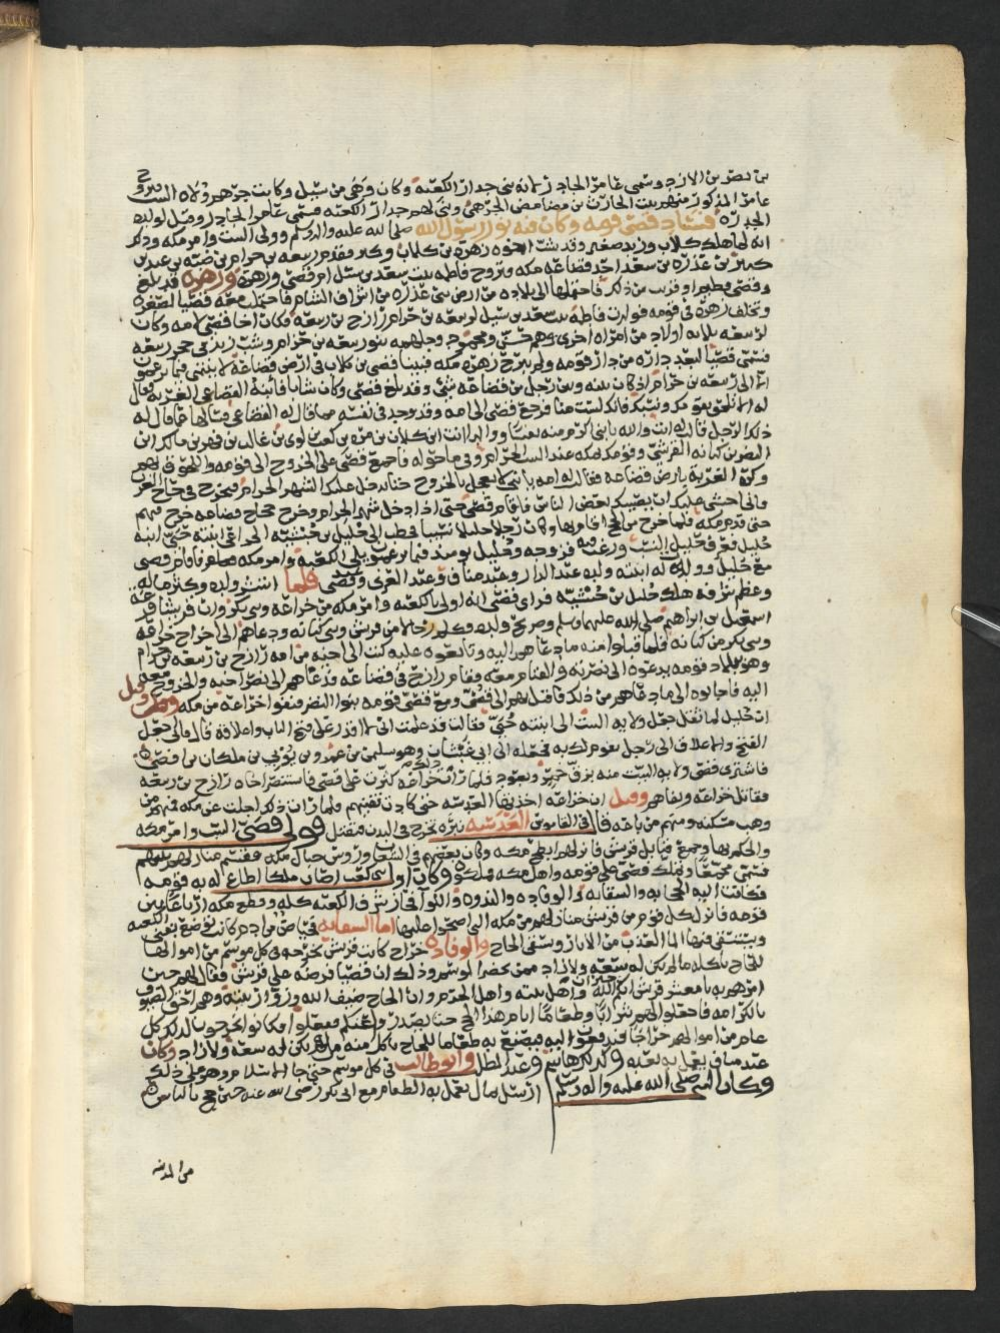 بن نصر بن الازد وسمى عامر الجادر لانه بنى جدار الكعبة وكان وهى من سيل وكانت جرهم ولاة البيت
عامر المذكور منهم بنت الحارث بن مضاض الجرهمي وبنى لهم جدار الكعبة فسمى عامر الجادر وقيل لولده
الجدرة فساد قصي قومه وكان فيه نور رسول الله صلى الله عليه واله وسلم وولى البيت وامر مكه وذلك
انه لما هلك كلاب وزيد صغير وقد شب اخوه زهرة بن كلاب وكبر فقدم ربيعه بن حرام بن ضنه بن عبد بن
كبير بن عذره بن سعد احد قضاعه مكه فتزوج فاطمه بنت سعد بن سيل ام قصي وزهرة وزهرة قد بلغ
وقصي فطيم او قريب من ذلك فاحتملها الى بلاده من ارض بني عذره من اشراف الشام فاحتملت معه قصيا لصغره
وتخلف زهرة في قومه فولدت فاطمه بنت سعد بن سيل لربيعه بن حرام رزاح بن ربيعه فكان اخا قصي لامه وكان
لربيعه ثلاثه اولاد من امراه اخرى وهم حن ومحمود وجلهمه بنو ربيعه بن حرام وشب زيد في حجر ربيعه
فسمى قصيا لبعد داره من دار قومه ولم يبرح زهرة مكه فبينا قصي بن كلاب في ارض قضاعة لا ينتمي فيما يزعمون
الا الى ربيعه بن حرام اذ كان بينه وبين رجل من قضاعه شي وقد بلغ قصي وكان شابا فانبه القضاعي الغربه وقال
له الا تلحق بقومك ونسبك فانك لست منا فرجع قصي الى امه وقد وجد في نفسه مما قال له القضاعي فسالها عما قال له
ذلك الرجل فقالت انت والله يا بني اكرم منه نفسا ووالدا انت ابن كلاب بن مره بن كعب بن لوي بن غالب بن فهر بن مالك ابن
النضر بن كنانه القرشي وقومك بمكه عند البيت الحرام وفي ما حوله فاجمع قصي على الخروج الى قومه واللحوق بهم
وكره الغربة بارض قضاعه فقالت له امه يا بني لا تعجل بالخروج حتى يدخل عليك الشهر الحرام فتخرج في حاج العرب
فاني اخشى عليك ان يصيبك بعض الناس فاقام قصي حتى اذا دخل شهر الحرام وخرج حجاج قضاعه خرج فيهم
حتى قدم مكه فلما فرغ من الحج اقام بها وكان رجلا جليلا نسيبا فخطب الى حليل بن حبشيه الخزاعي ابنته حبى ابنه
حليل فعرف حليل النسب ورغب فيه فزوجه وحليل يومئذ فيما يزعمون يلي الكعبة وامر مكه فاقام قصي
مع حليل وولدت له ابنته ولده عبد الدار وعبد مناف وعبد العزى وعبد قصي فلما انتشر ولده وكثر ماله
وعظم شرفه هلك حليل بن حبشيه فراى قصي انه اولى بالكعبه وامر مكه من خزاعه وبني بكر وان قريشا فرعة
اسمعيل بن ابراهيم صلى الله عليهما وسلم وصريح ولده وكلم رجالا من قريش وبني كنانه ودعاهم الى اخراج خزاعه
وبني بكر من كنانه فلما قبلوا منه ما دعاهم اليه وتابعوه عليه كتب الى اخيه من امه رزاح بن ربيعه بن حرام
وهو ببلاد قومه يدعوه الى نصرته والقيام معه فقام رزاح في قضاعه فدعاهم الى نصر اخيه والخروج معه
اليه فاجابوه الى ما دعاهم من ذلك فاقبل بهم الى قصي ومع قصي قومه بنو النضر فنفوا خزاعه من مكه وقيل
ان حليل لما ثقل جعل ولاية البيت الى ابنته حبى فقالت قد علمت اني لا اقدر على فتح الباب واغلاقه قال اني اجعل
الفتح والاغلاق الى رجل يقوم لك به فجعله الى ابي غبشان وهو سليم بن عمرو بن بوي بن ملكان بن افصى
فاشترى قصي ولايه البيت منه بزق خمر وبعود فلما رات خزاعه كثرت على قصي فاستنصر اخاه رزاح بن ربيعه
فقاتل خزاعه ونفاهم وقيل ان خزاعه اخذتها العدسه حتى كادت تفنيهم فلما رات ذلك اجلت عن مكه فمنهم من
وهب مسكنه ومنهم من باعه قال في القاموس العدسه بثره تخرج في البدن فتقتل فولى قصي البيت وامر مكه
والحكم بها وجمع قبايل قريش فانزلهم ابطح مكه وكان بعضهم في الشعاب ورؤس جبال مكه فقسم منازلهم بينهم
فسمي مجمعا وملك قصي على قومه واهل مكه فملكوه وكان اول بني كعب اصاب ملكا اطاع له به قومه
فكانت اليه الحجابه والسقايه والرفاده والندوه واللوا فحاز شرف الكعبه كله وقطع مكه ارباعا بين
قومه فانزل كل قوم من قريش منازلهم من مكه التي اصبحوا عليها اما السقايه فحياض من ادم كانت توضع بفنى الكعبه
ويستقى فيها الما العذب من الابار ويسقى الحاج والرفاده خراج كانت قريش تخرجه في كل موسم من اموالها
للحاج ياكله من لم يكن له سعة ولا زاد ممن يحضر الموسم وذلك ان قصيا فرضه على قريش فقال لهم حين
امرهم به يا معشر قريش انكم جيران الله واهل بيته واهل الحرم وان الحاج ضيف الله وزوار بيته وهم احق الضيوف
بالكرامه فاجعلوا لهم شرابا وطعاما ايام هذا الحج حتى يصدروا عنكم ففعلوا فكانوا يخرجون لذلك كل
عام من اموالهم خراجا فيدفعونه اليه فيصنع به طعاما للحاج ياكل منه من لم يكن له سعة ولا زاد وكان
عبد مناف يعمل به بعده وكذلك هاشم وعبد المطلب وابو طالب في كل موسم حتى جا الاسلام وهو على ذلك
وكان النبي صلى الله عليه واله وسلم ارسل بمال يعمل به الطعام مع ابي بكر رضي الله عنه حين حج بالناس
من المدينه